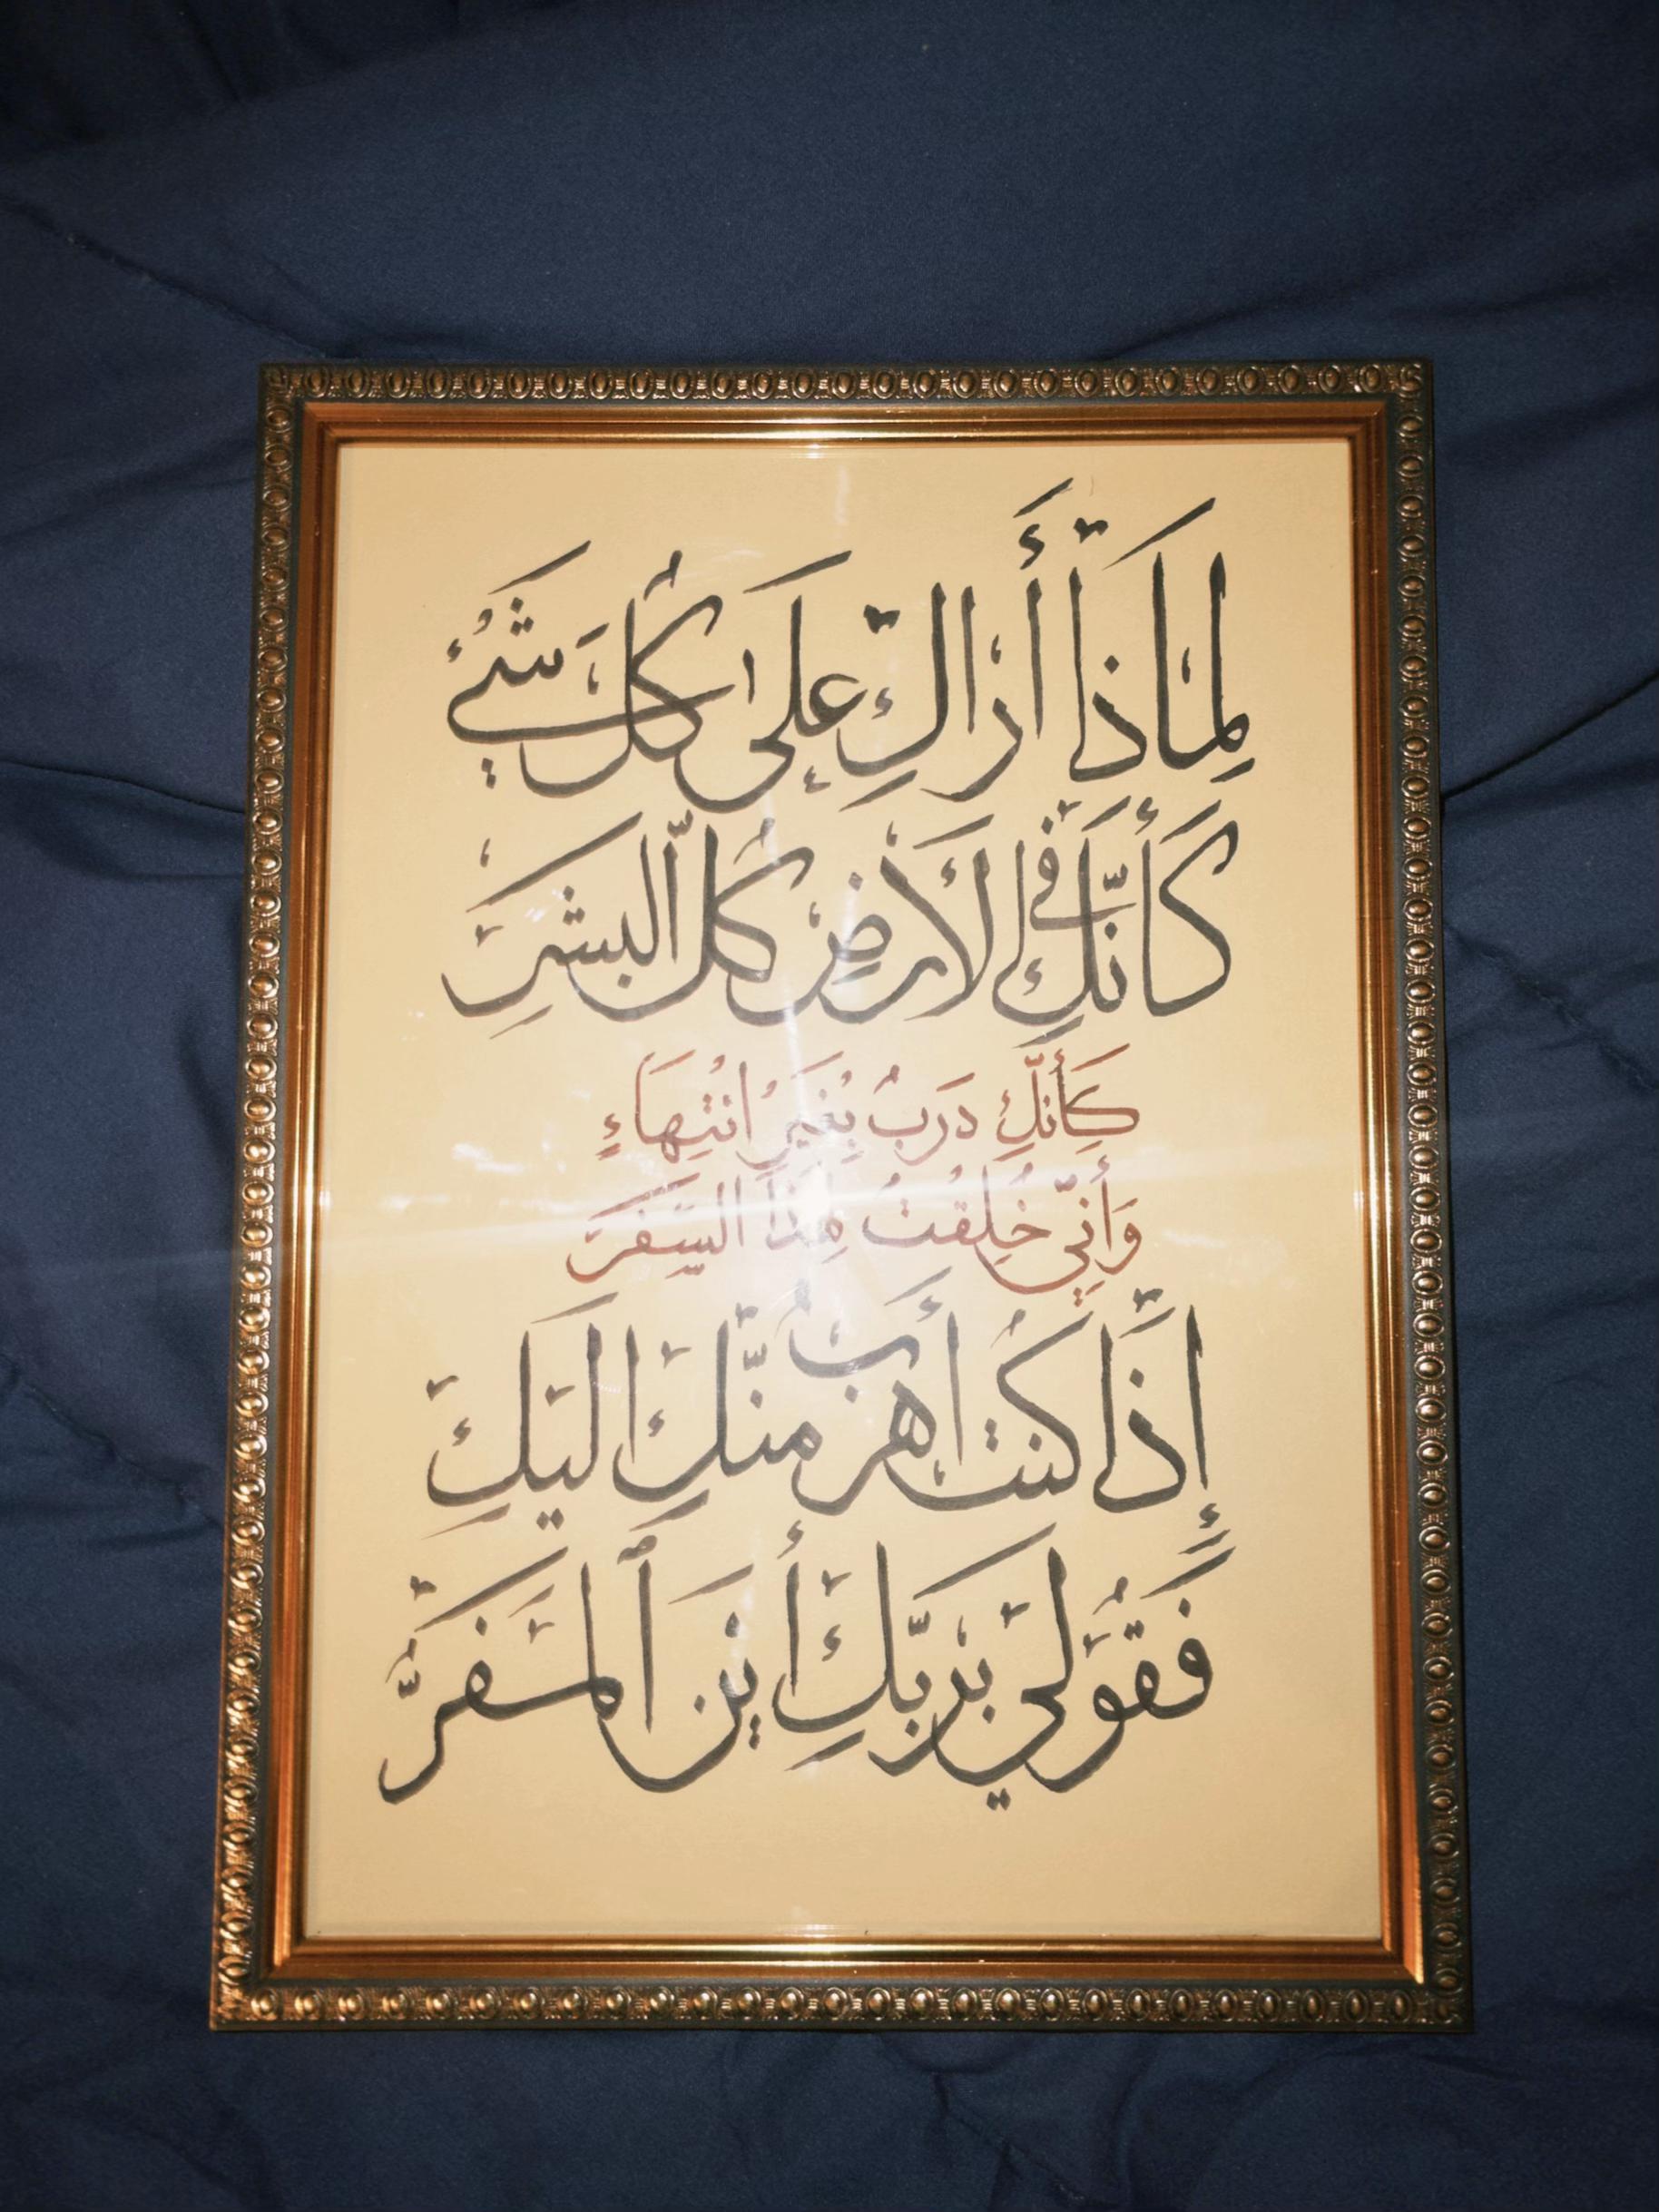 لِمَاذَا أَرَاكِ عَلَى كُلِّ شَيْءٍ
كَأَنَّكِ فِي الْأَرْضِ كُلُّ الْبَشَرِ
كَأَنَّكِ دَرْبٌ بِغَيْرِ انْتِهَاءٍ
وَأَنِّي خُلِقْتُ لِهَذَا السَّفَرِ
إِذَا كُنْتُ أَهْرَبُ مِنْكِ إِلَيْكِ
فَقُولِي بِرَبِّكِ أَيْنَ ٱلْمَفَرُّ